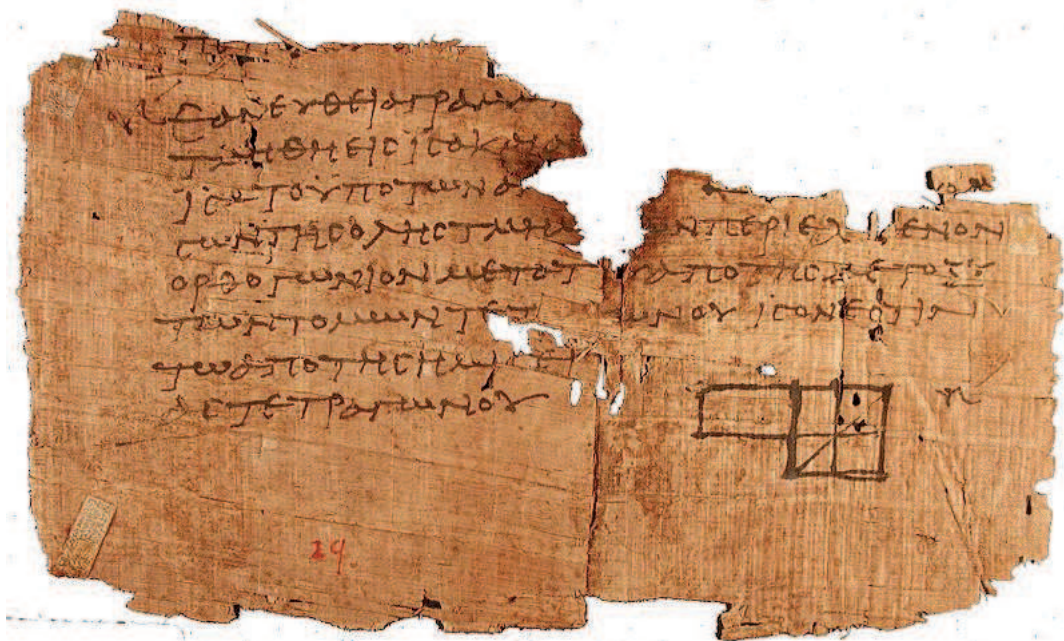 ΕΑΝ ΕΥΘΕΙΑ ΓΡΑΜΜ
ΤΜΗΘΗ ΕΙC ΙCΑ ΚΑΙ Α
ΤΟ ΥΠΟ ΤΩΝ ΑΝ
ΤΩΝ ΤΗC ΟΛΗC ΤΜΗΜ Ν ΠΕΡΙΕΧΟΜΕΝΟΝ
ΟΡΘΟΓΩΝΙΟΝ ΜΕΤΑ Τ ΑΠΟ ΤΗC ΜΕΤΟΞΥ
ΤΩΝ ΤΟΜΩΝ ΤΕΤ ΩΝΟΥ ΙCΟΝ ΕCΤΙΝ
ΤΩ ΑΠΟ ΤΗC ΗΜΙCΕΙ
ΑC ΤΕΤΡΑΓΩΝΟΥ
29